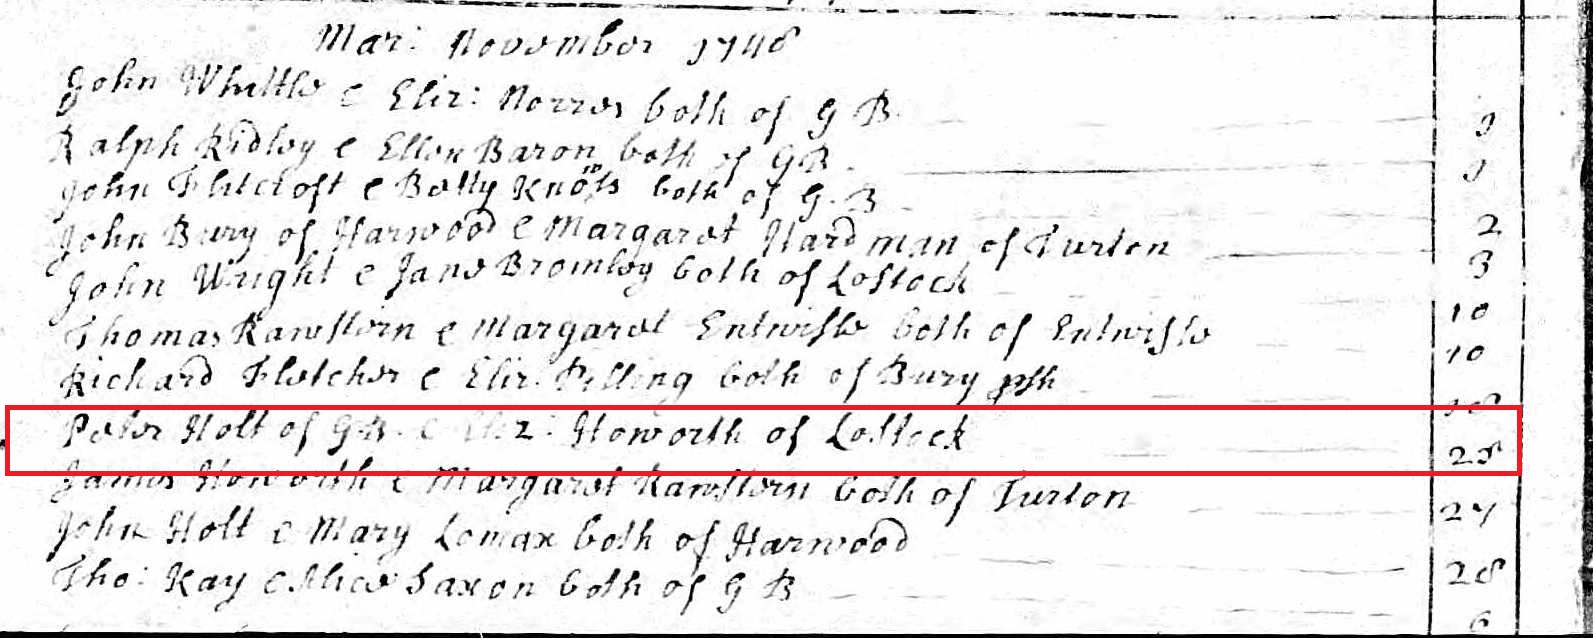 Mar: November 1748
John Whittle & Eliz: Norres both of G B 1
Ralph Ridley & Ellen Baron both of G B 1
John Flitcroft & Betty Knots both of G. B 2
John Bury of Harwood & Margaret Hardman of Turton 3
John Wright & Jane Bromley both of Lostock 10
Thomas Rawstorn & Margaret Entwisle both of Entwisle 10
Richard Fletcher & Eliz: Pilling both of Bury psh 18
Peter Holt of G B. & Eliz: Howorth of Lostock
James Howorth & Margaret Rawstorn both of Turton 27
John Holt & Mary Lomax both of Harwood 28
Tho: Kay & Alice Saxon both of G B